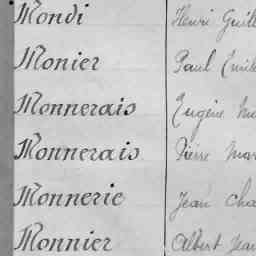 Mondi Henri Guill
Monier Paul Emile
Monnerais Eugène
Monnerais Pierre Mar
Monnerie Jean Cha
Monnier Albert Jean